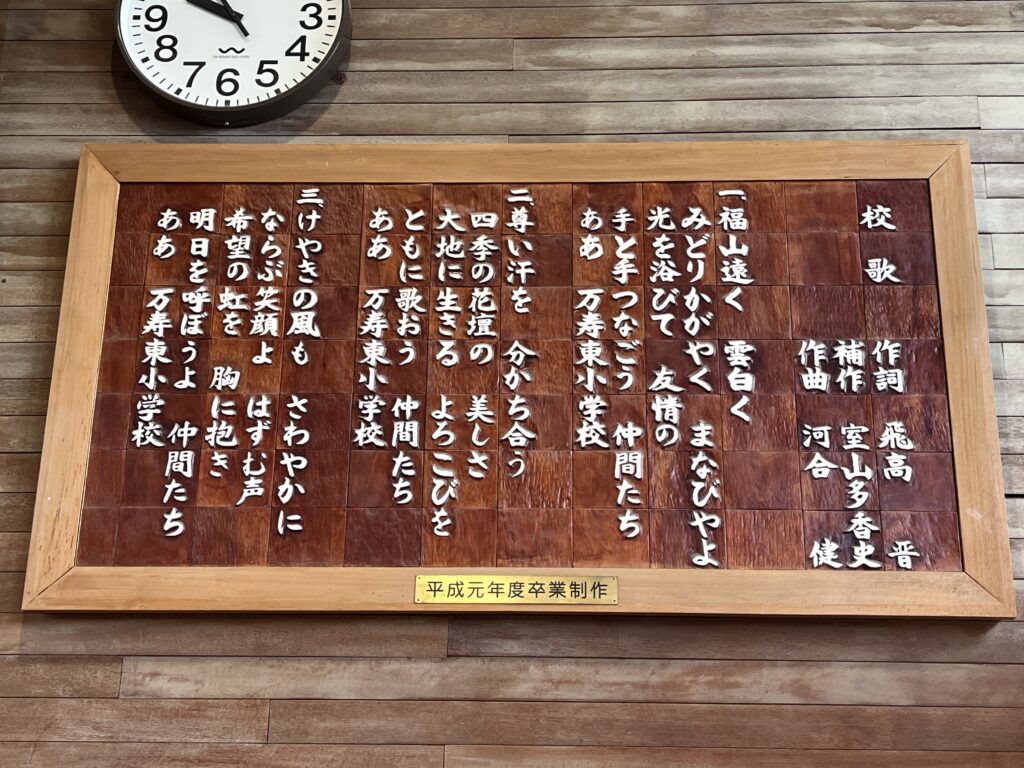 校歌
作詞 飛高 晋
補作 室山多香史
作曲 河合 健
一、福山遠く 雲白く
みどりかがやく まなびやよ
光を浴びて 友情の
手と手つなごう 仲間たち
ああ 万寿東小学校
二、尊い汗を 分かち合う
四季の花壇の 美しさ
大地に生きる よろこびを
ともに歌おう 仲間たち
ああ 万寿東小学校
三、けやきの風も さわやかに
ならぶ笑顔よ はずむ声
希望の虹を 胸に抱き
明日を呼ぼうよ 仲間たち
ああ 万寿東小学校
平成元年度卒業制作
3
4
5
6
7
8
9